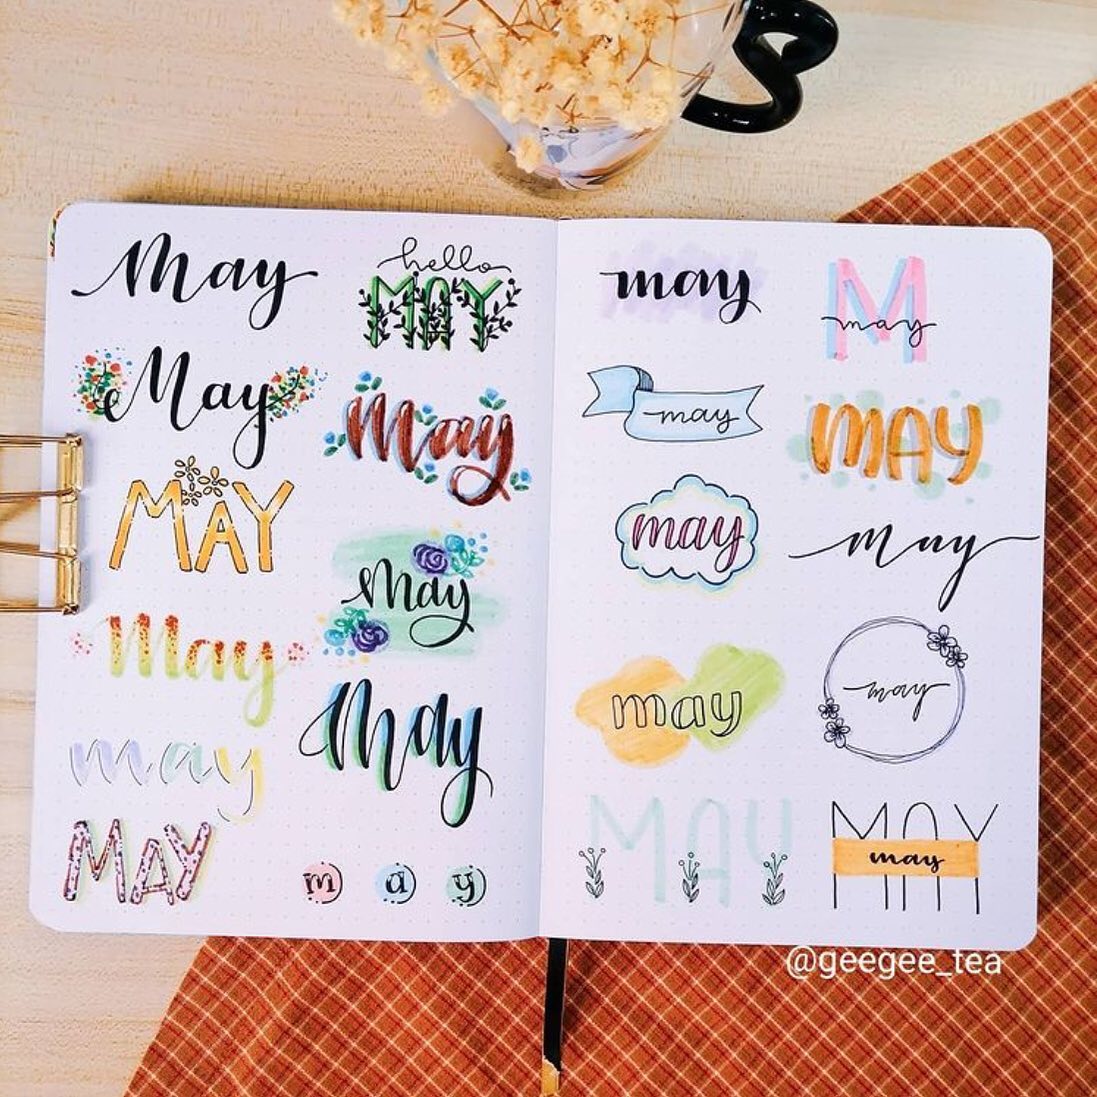 May
hello
MAY
May
May
MAY
May
May
may
May
MAY
m a y
may
M
may
may
MAY
may
may
may
may
MAY
MAY
may
@geegee_tea